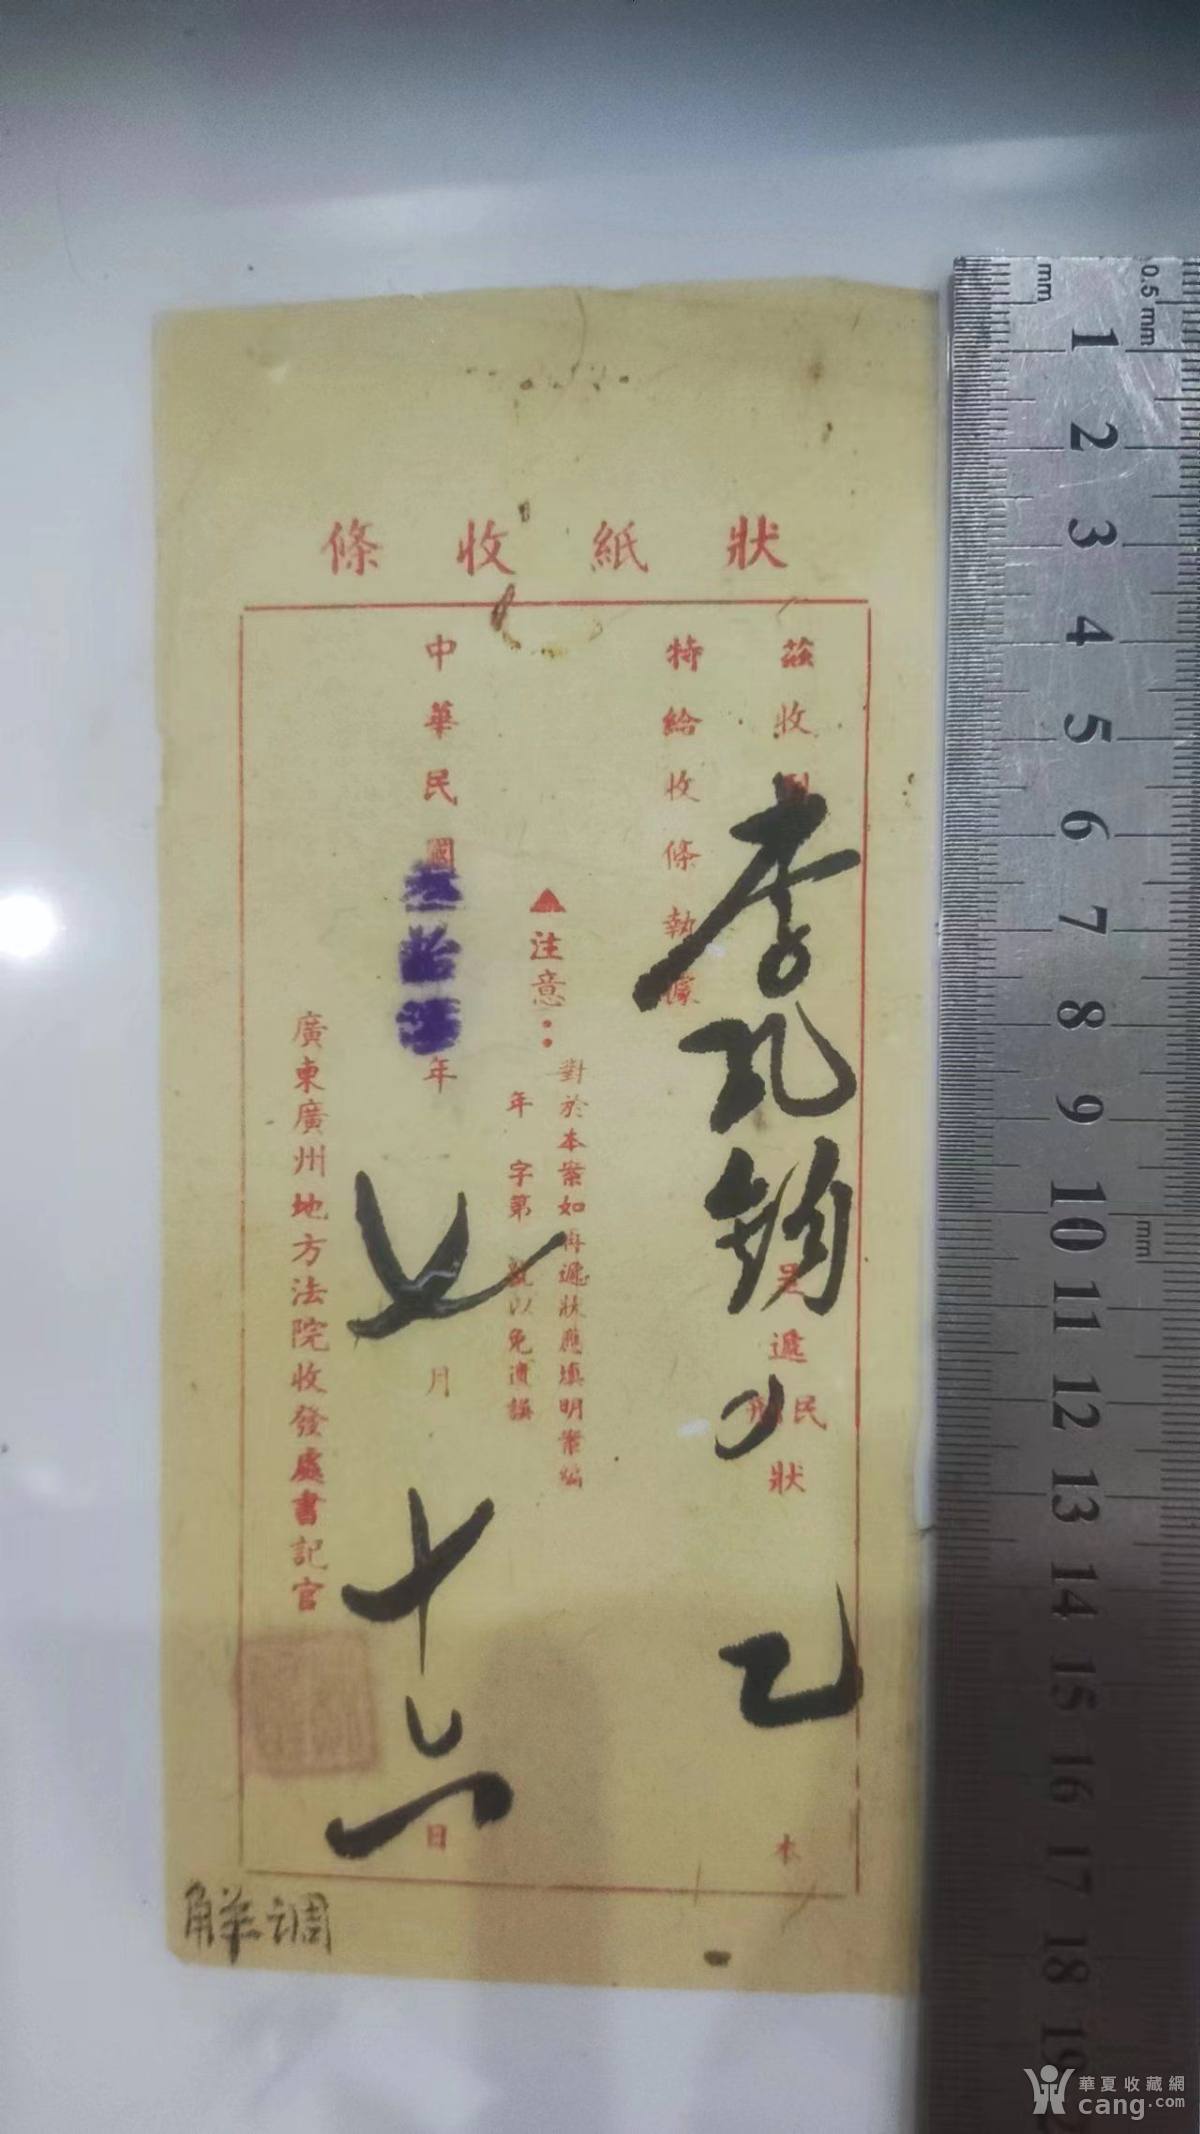 狀紙收條
茲收到李孔鈞呈遞民刑狀
本
特給收條執據
▲注意：
對於本案如再遞狀應填明案編
年 字第 號以免遺誤
中華民國叁拾年七月十六日
廣東廣州地方法院收發處書記官
調解
mm
0.5 mm
1
2
3
4
5
6
7
8
9
10
mm
11
12
13
14
15
16
17
18
19
華夏收藏網
cang.com